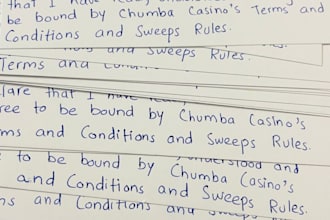 that I have
be bound by Chumba Casino's Terms and
Conditions and Sweeps Rules.
and Sweeps Rules.
Terms and
that I have
to be bound by Chumba Casino's
and Conditions and Sweeps Rules.
understood and
to be bound by Chumba Casino's
and Conditions and Sweeps Rules.
and Conditions and